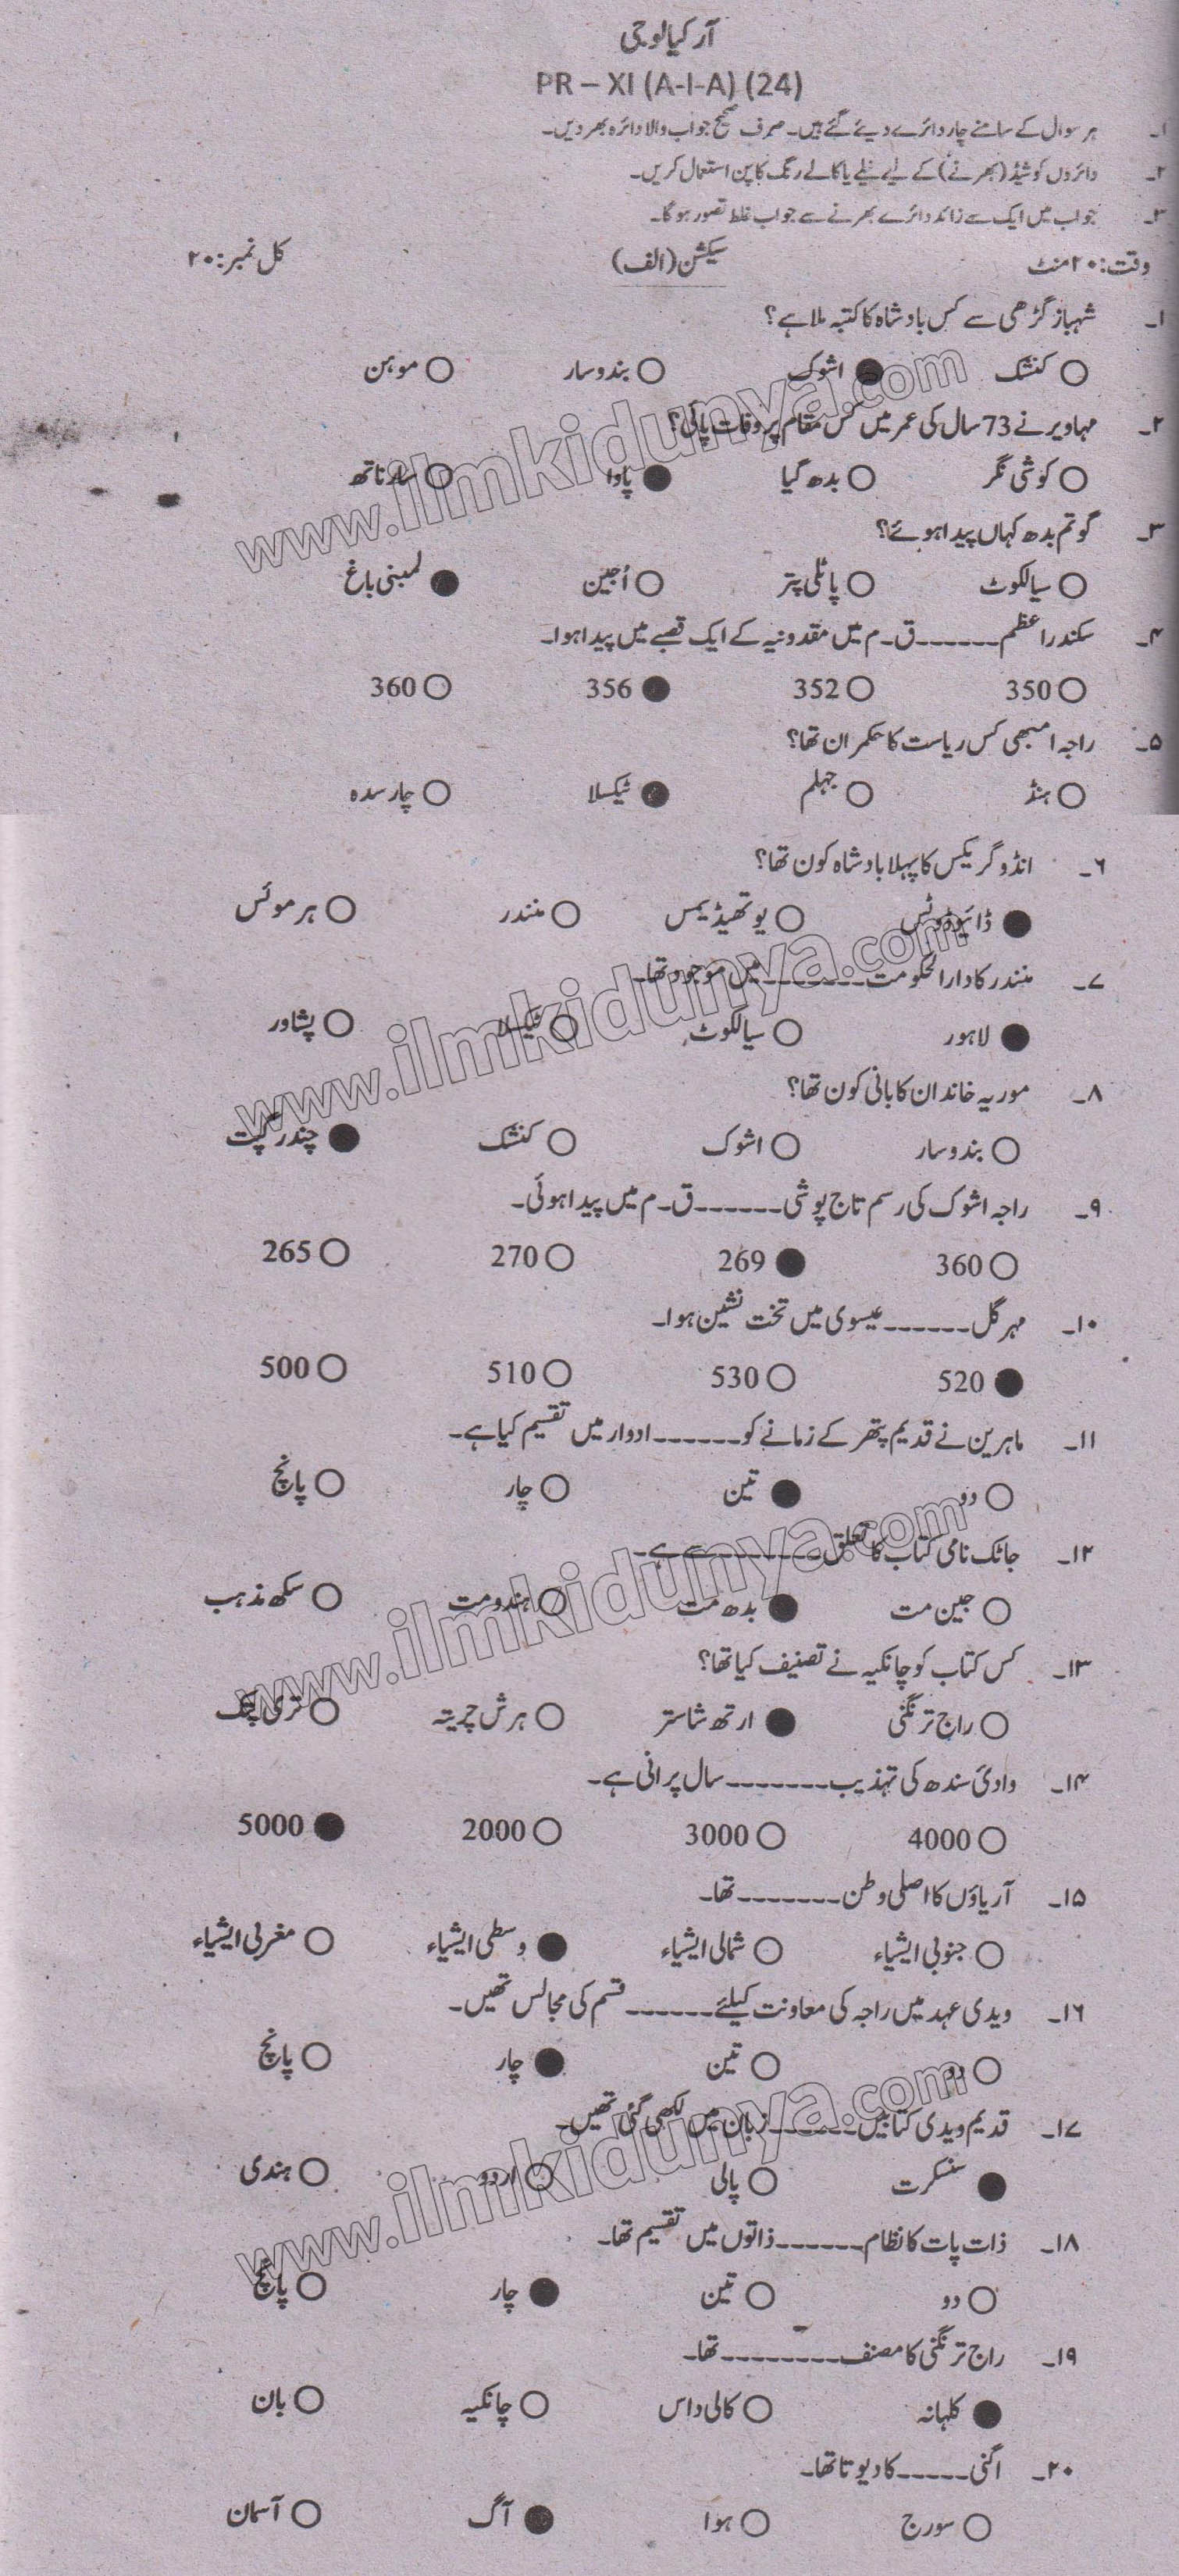 آرکیالوجی
PR – XI (A-I-A) (24)
۱۔ ہر سوال کے سامنے چار دائرے دیئے گئے ہیں۔ صرف صحیح جواب والا دائرہ بھر دیں۔
۲۔ دائروں کو شیڈ (بھرنے) کے لیے نیلے یا کالے رنگ کا پن استعمال کریں۔
۳۔ جواب میں ایک سے زائد دائرے بھرنے سے جواب غلط تصور ہو گا۔
وقت: ۲۰ منٹ سیکشن (الف) کل نمبر: ۲۰
۱۔ شہباز گڑھی سے کس بادشاہ کا کتبہ ملا ہے؟
○ کنشک ● اشوک ○ بندوسار ○ موہن
۲۔ مہاویر نے 73 سال کی عمر میں کس مقام پر وفات پائی؟
○ کوشی نگر ○ بدھ گیا ● پاوا ○ سارناتھ
۳۔ گوتم بدھ کہاں پیدا ہوئے؟
○ سیالکوٹ ○ پاٹلی پتر ○ اُجین ● لمبنی باغ
۴۔ سکندر اعظم ------ ق۔م میں مقدونیہ کے ایک قصبے میں پیدا ہوا۔
○ 350 ○ 352 ● 356 ○ 360
۵۔ راجہ امبھی کس ریاست کا حکمران تھا؟
○ ہنڈ ○ جہلم ● ٹیکسلا ○ چارسدہ
۶۔ انڈو گریکس کا پہلا بادشاہ کون تھا؟
● ڈائیوڈوٹس ○ یوتھیڈیمس ○ منندر ○ ہرموئس
۷۔ منندر کا دارالحکومت ------- میں موجود تھا۔
● لاہور ○ سیالکوٹ ○ ٹیکسلا ○ پشاور
۸۔ موریہ خاندان کا بانی کون تھا؟
○ بندوسار ○ اشوک ○ کنشک ● چندر گپت
۹۔ راجہ اشوک کی رسم تاج پوشی ------ ق۔م میں پیدا ہوئی۔
○ 360 ● 269 ○ 270 ○ 265
۱۰۔ مہر گل ------ عیسوی میں تخت نشین ہوا۔
● 520 ○ 530 ○ 510 ○ 500
۱۱۔ ماہرین نے قدیم پتھر کے زمانے کو ------ ادوار میں تقسیم کیا ہے۔
○ دو ● تین ○ چار ○ پانچ
۱۲۔ جاتک نامی کتاب کا تعلق -------- سے ہے۔
○ جین مت ● بدھ مت ○ ہندو مت ○ سکھ مذہب
۱۳۔ کس کتاب کو چانکیہ نے تصنیف کیا تھا؟
○ راج ترنگنی ● ارتھ شاستر ○ ہرش چریتہ ○ تری پتک
۱۴۔ وادئ سندھ کی تہذیب ------- سال پرانی ہے۔
○ 4000 ○ 3000 ○ 2000 ● 5000
۱۵۔ آریاؤں کا اصلی وطن ------- تھا۔
○ جنوبی ایشیاء ○ شمالی ایشیاء ● وسطی ایشیاء ○ مغربی ایشیاء
۱۶۔ ویدی عہد میں راجہ کی معاونت کیلئے ------ قسم کی مجالس تھیں۔
○ دو ○ تین ● چار ○ پانچ
۱۷۔ قدیم ویدی کتابیں ------ زبان میں لکھی گئی تھیں۔
● سنسکرت ○ پالی ○ اردو ○ ہندی
۱۸۔ ذات پات کا نظام ------ ذاتوں میں تقسیم تھا۔
○ دو ○ تین ● چار ○ پانچ
۱۹۔ راج ترنگنی کا مصنف -------- تھا۔
● کلہانہ ○ کالی داس ○ چانکیہ ○ بان
۲۰۔ اگنی ----- کا دیوتا تھا۔
○ سورج ○ ہوا ● آگ ○ آسمان
www.ilmkidunya.com
www.ilmkidunya.com
www.ilmkidunya.com
www.ilmkidunya.com